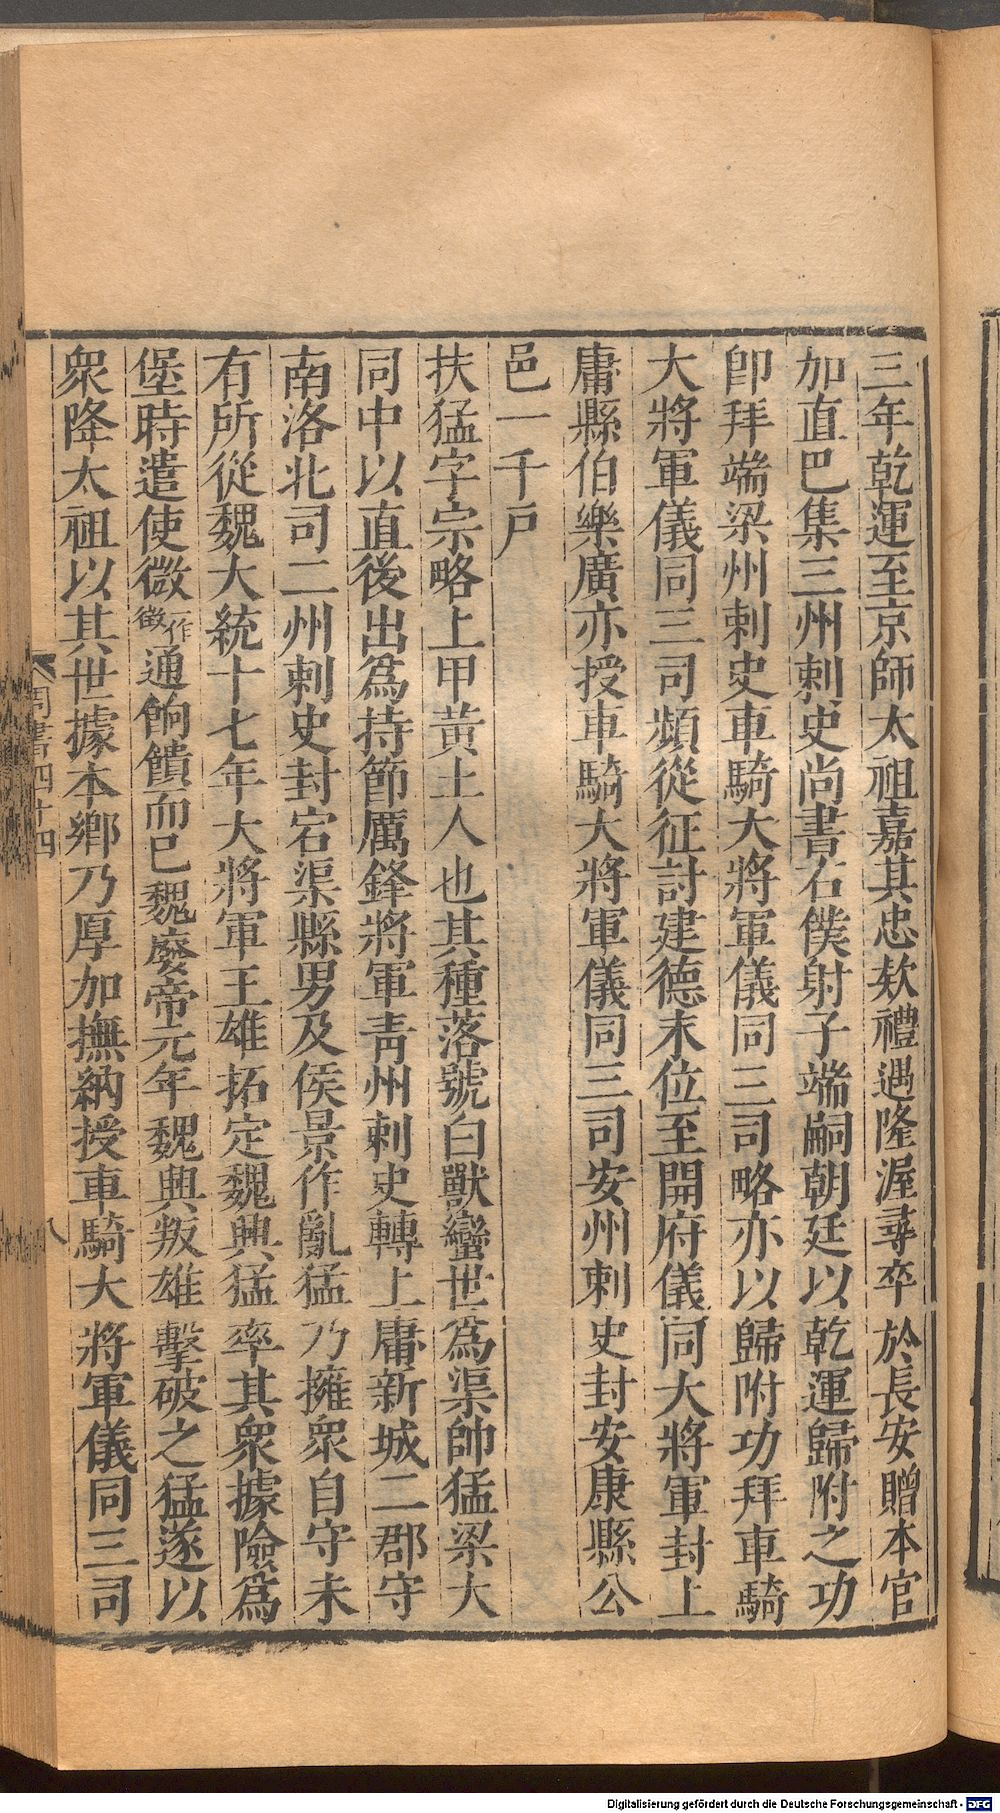 三年乾運至京師太祖嘉其忠欵禮遇隆渥尋卒於長安贈本官
加直巴集三州刺史尚書右僕射子端嗣朝廷以乾運歸附之功
卽拜端梁州刺史車騎大將軍儀同三司略亦以歸附功拜車騎
大將軍儀同三司頻從征討建德末位至開府儀同大將軍封上
庸縣伯樂廣亦授車騎大將軍儀同三司安州刺史封安康縣公
邑一千戸
扶猛字宗略上甲黃土人也其種落號白獸蠻世爲渠帥猛梁大
同中以直後出爲持節厲鋒將軍靑州刺史轉上庸新城二郡守
南洛北司二州刺史封宕渠縣男及侯景作亂猛乃擁衆自守未
有所從魏大統十七年大將軍王雄拓定魏興猛率其衆據險爲
堡時遣使微一作徵通餉饋而已魏廢帝元年魏興叛雄擊破之猛遂以
衆降太祖以其世據本鄉乃厚加撫納授車騎大將軍儀同三司
周書四十四
八
Digitalisierung gefördert durch die Deutsche Forschungsgemeinschaft - DFG